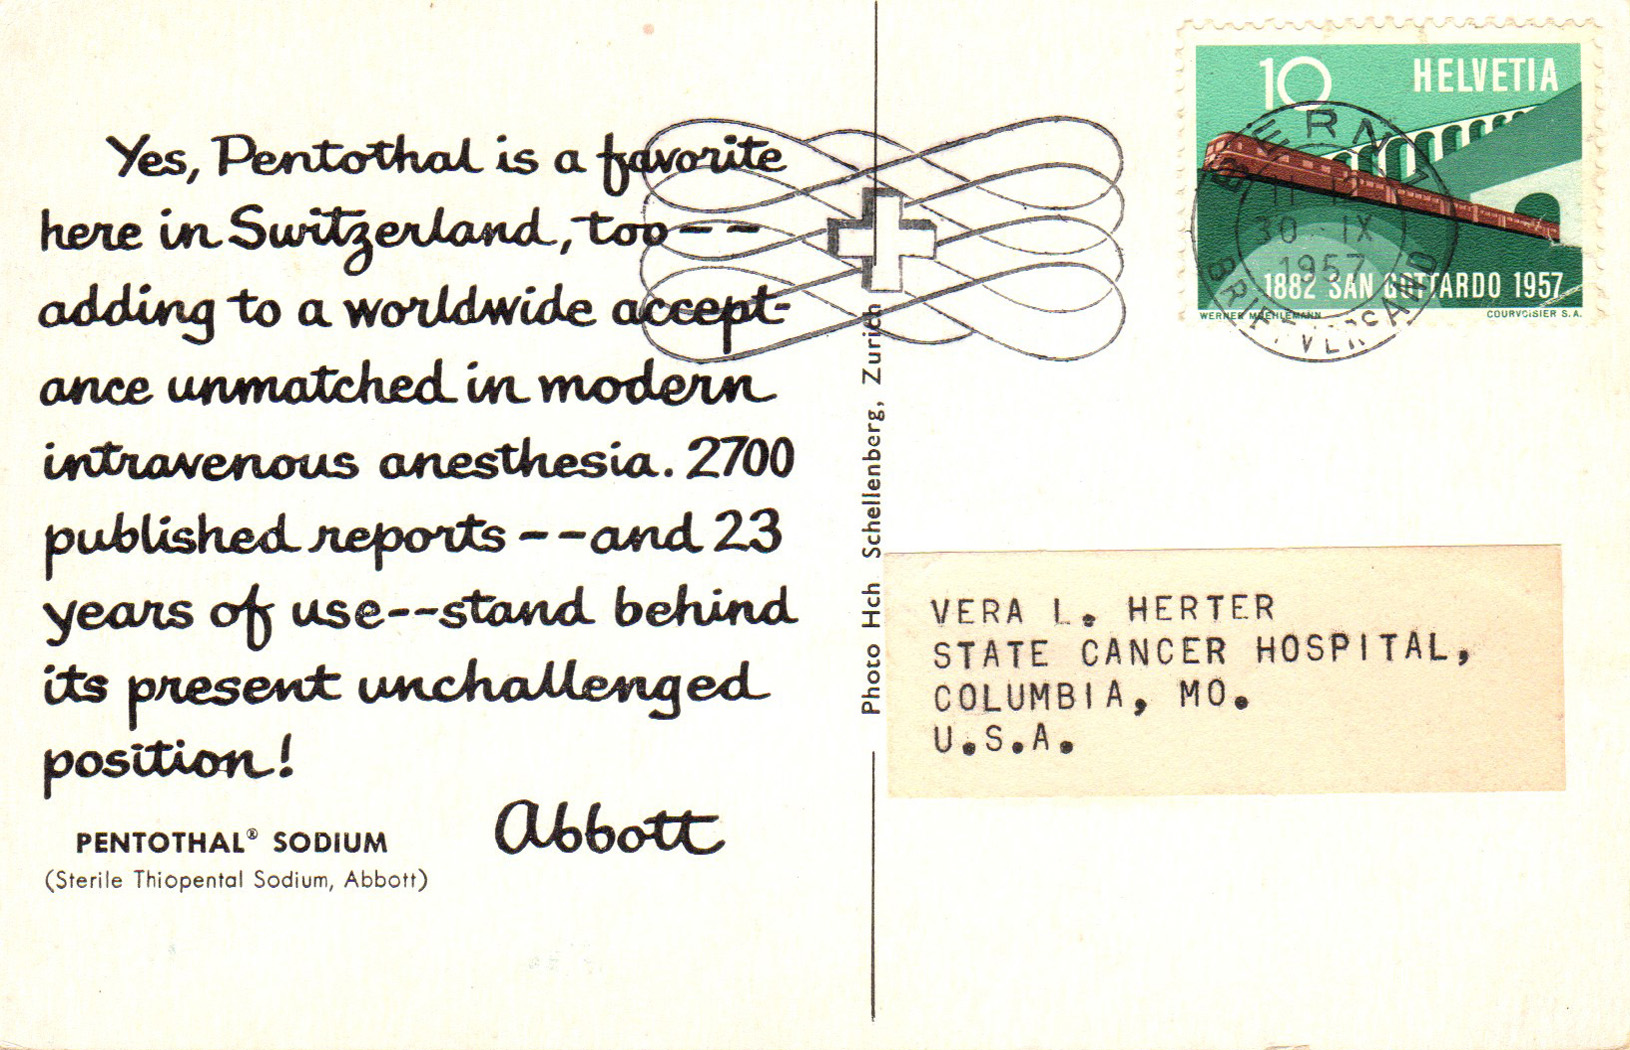 Yes, Pentothal is a favorite
here in Switzerland, too--
adding to a worldwide accept-
ance unmatched in modern
intravenous anesthesia. 2700
published reports --and 23
years of use--stand behind
its present unchallenged
position!
Abbott
PENTOTHAL® SODIUM
(Sterile Thiopental Sodium, Abbott)
Photo Hch Schellenberg, Zurich
10 HELVETIA
1882 SAN GOTTARDO 1957
WERNER MUEHLEMANN COURVOISIER S.A.
BERN 1
30.-IX
1957
BRIEFVERSAND
VERA L. HERTER
STATE CANCER HOSPITAL,
COLUMBIA, MO.
U.S.A.